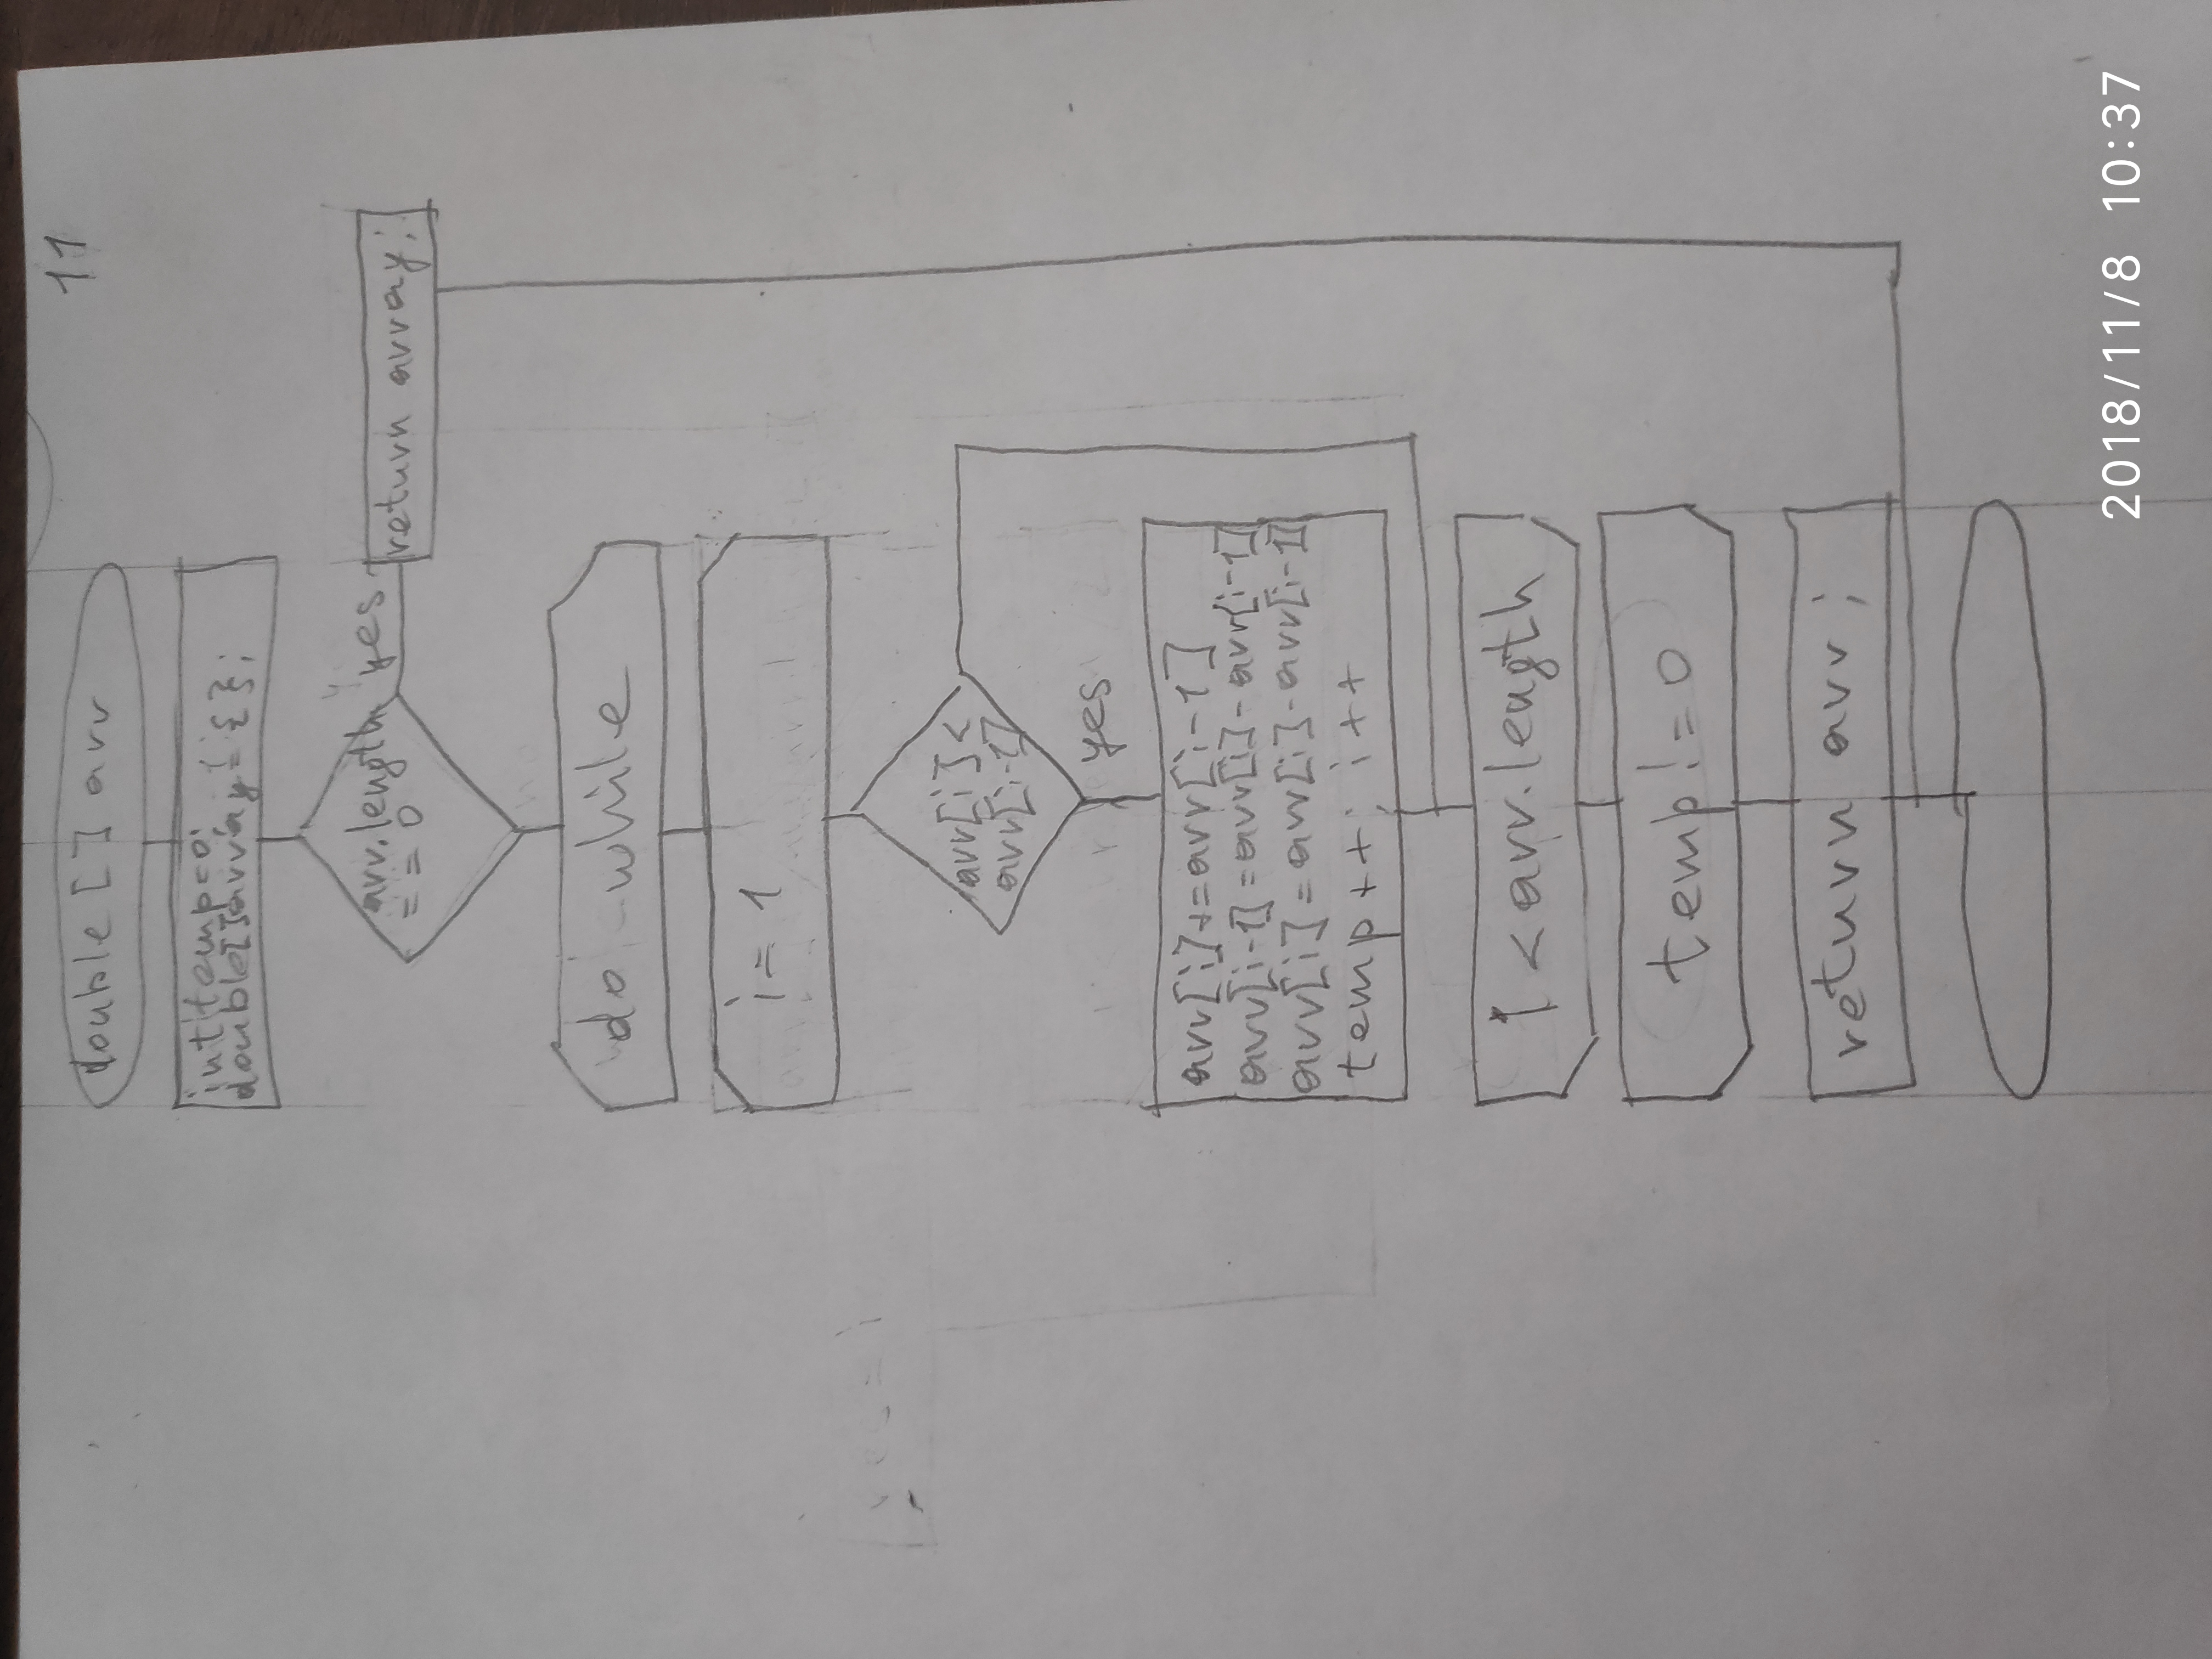 11
double [] arr
int temp=0;
double[]array={};
arr.length
== 0
yes
return array;
do while
i = 1
arr[i] <
arr[i-1]
yes
arr[i]+=arr[i-1]
arr[i-1]=arr[i]-arr[i-1]
arr[i]=arr[i]-arr[i-1]
temp++; i++
i < arr.length
temp!=0
return arr;
2018/11/8 10:37